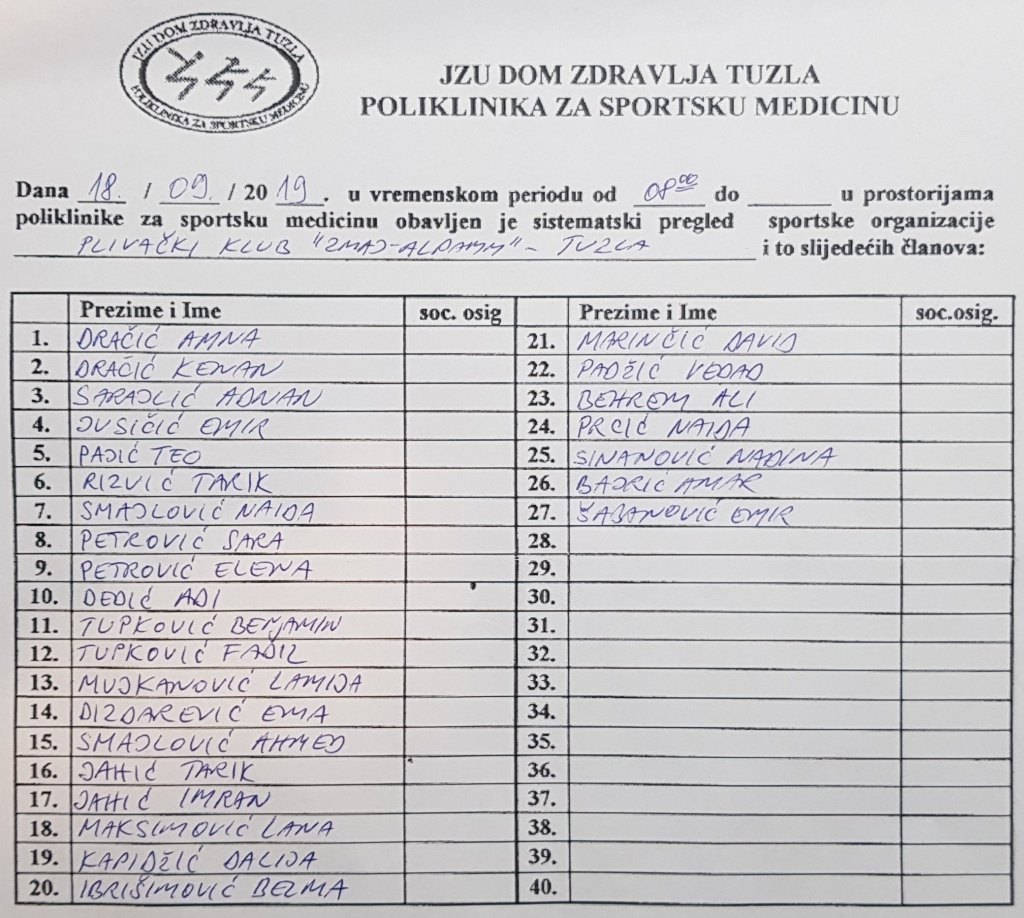 JZU DOM ZDRAVLJA TUZLA
POLIKLINIKA ZA SPORTSKU MEDICINU
JZU DOM ZDRAVLJA TUZLA
POLIKLINIKA ZA SPORTSKU MEDICINU
Dana 18. / 09. / 20 19. u vremenskom periodu od 08⁰⁰ do ______ u prostorijama
poliklinike za sportsku medicinu obavljen je sistematski pregled sportske organizacije
PLIVAČKI KLUB "ZMAJ-ALPAMM" - TUZLA i to slijedećih članova:
Prezime i Ime soc. osig Prezime i Ime soc.osig.
1. DRAČIĆ AMNA 21. MARINČIĆ DAVID
2. DRAČIĆ KENAN 22. PADŽIĆ VEDAD
3. SARAJLIĆ ADNAN 23. BEHREM ALI
4. JUSIČIĆ EMIR 24. PRCIĆ NAIDA
5. PAJIĆ TEO 25. SINANOVIĆ NADINA
6. RIZVIĆ TARIK 26. BAJRIĆ AMAR
7. SMAJLOVIĆ NAIDA 27. ŠABANOVIĆ EMIR
8. PETROVIĆ SARA 28.
9. PETROVIĆ ELENA 29.
10. DEDIĆ ADI 30.
11. TUPKOVIĆ BENJAMIN 31.
12. TUPKOVIĆ FADIL 32.
13. MUJKANOVIĆ LAMIJA 33.
14. DIZDAREVIĆ EMA 34.
15. SMAJLOVIĆ AHMED 35.
16. JAHIĆ TARIK 36.
17. JAHIĆ IMRAN 37.
18. MAKSIMOVIĆ LANA 38.
19. KAPIDŽIĆ DALIJA 39.
20. IBRIŠIMOVIĆ BELMA 40.